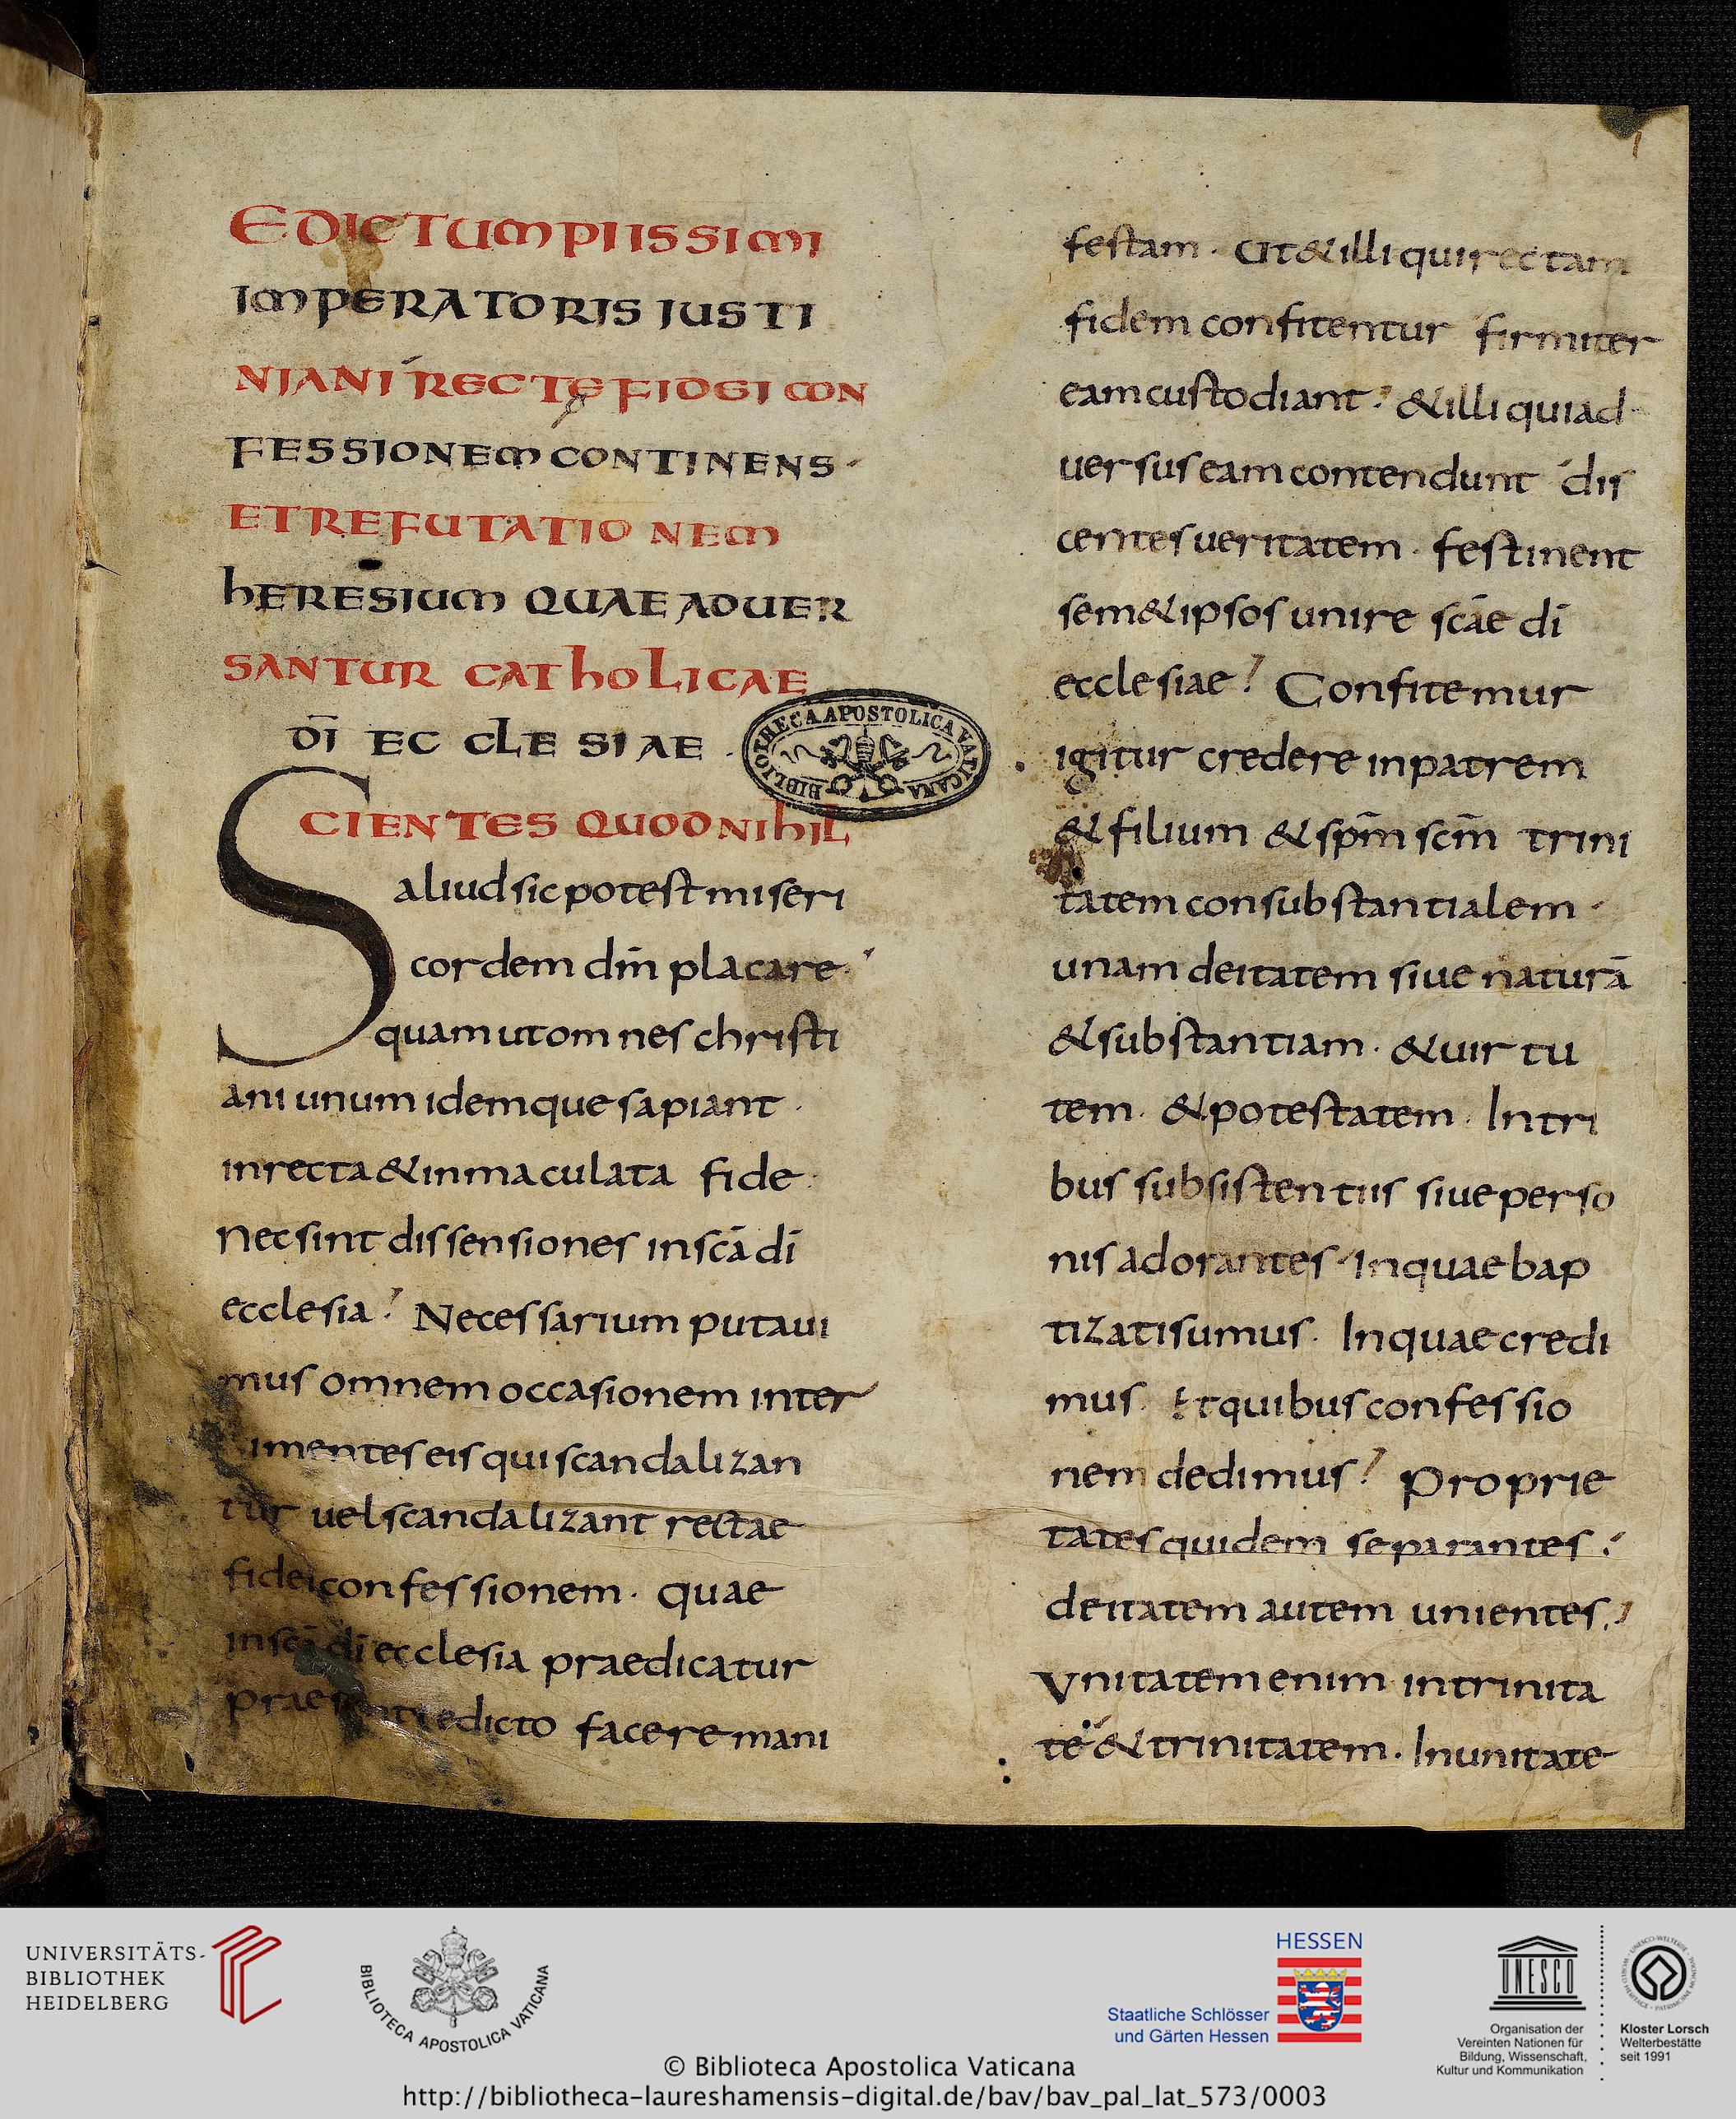 EDICTUM PIISSIMI
IMPERATORIS IUSTI
NIANI RECTE FIDEI CON
FESSIONEM CONTINENS·
ET REFUTATIONEM
hERESIUM QUAE ADUER
SANTUR CATHOLICAE
DI̅ ECCLESIAE ·
SCIENTES QUOD NIHIL
aliud sic potest miseri
cordem dm̅ placare·
quam ut omnes christi
ani unum idemque sapiant ·
in recta & inmaculata fide ·
Nec sint dissensiones in sca̅ di̅
ecclesia? Necessarium putaui
mus omnem occasionem inter
imentes eis qui scandalizan
tur uel scandalizant rectae
fidei confessionem · quae
in sca̅ di̅ ecclesia praedicatur
edicto facere mani
festam · Ut & illi qui rectam
fidem confitentur firmiter
eam custodiant? & illi qui ad
uersus eam contendunt dis
centes ueritatem · festinent
sem & ipsos unire sca̅e di̅
ecclesiae? Confitemur
igitur credere in patrem
& filium & spm̅ scm̅ trini
tatem consubstantialem ·
unam deitatem siue natura̅
& substantiam · & uirtu
tem · & potestatem · In tri
bus subsistentiis siue perso
nis adorantes · In quae bap
tizati sumus · In quae credi
mus · Et quibus confessio
nem dedimus? Proprie
tates quidem separantes?
deitatem autem unientes?
Unitatem enim in trinita
te & trinitatem · In unitate
BIBLIOTHECA APOSTOLICA VATICANA
1
UNIVERSITÄTS-
BIBLIOTHEK
HEIDELBERG
BIBLIOTECA APOSTOLICA VATICANA
HESSEN
Staatliche Schlösser
und Gärten Hessen
UNESCO
Organisation der
Vereinten Nationen für
Bildung, Wissenschaft,
Kultur und Kommunikation
Kloster Lorsch
Welterbestätte
seit 1991
© Biblioteca Apostolica Vaticana
http://bibliotheca-laureshamensis-digital.de/bav/bav_pal_lat_573/0003